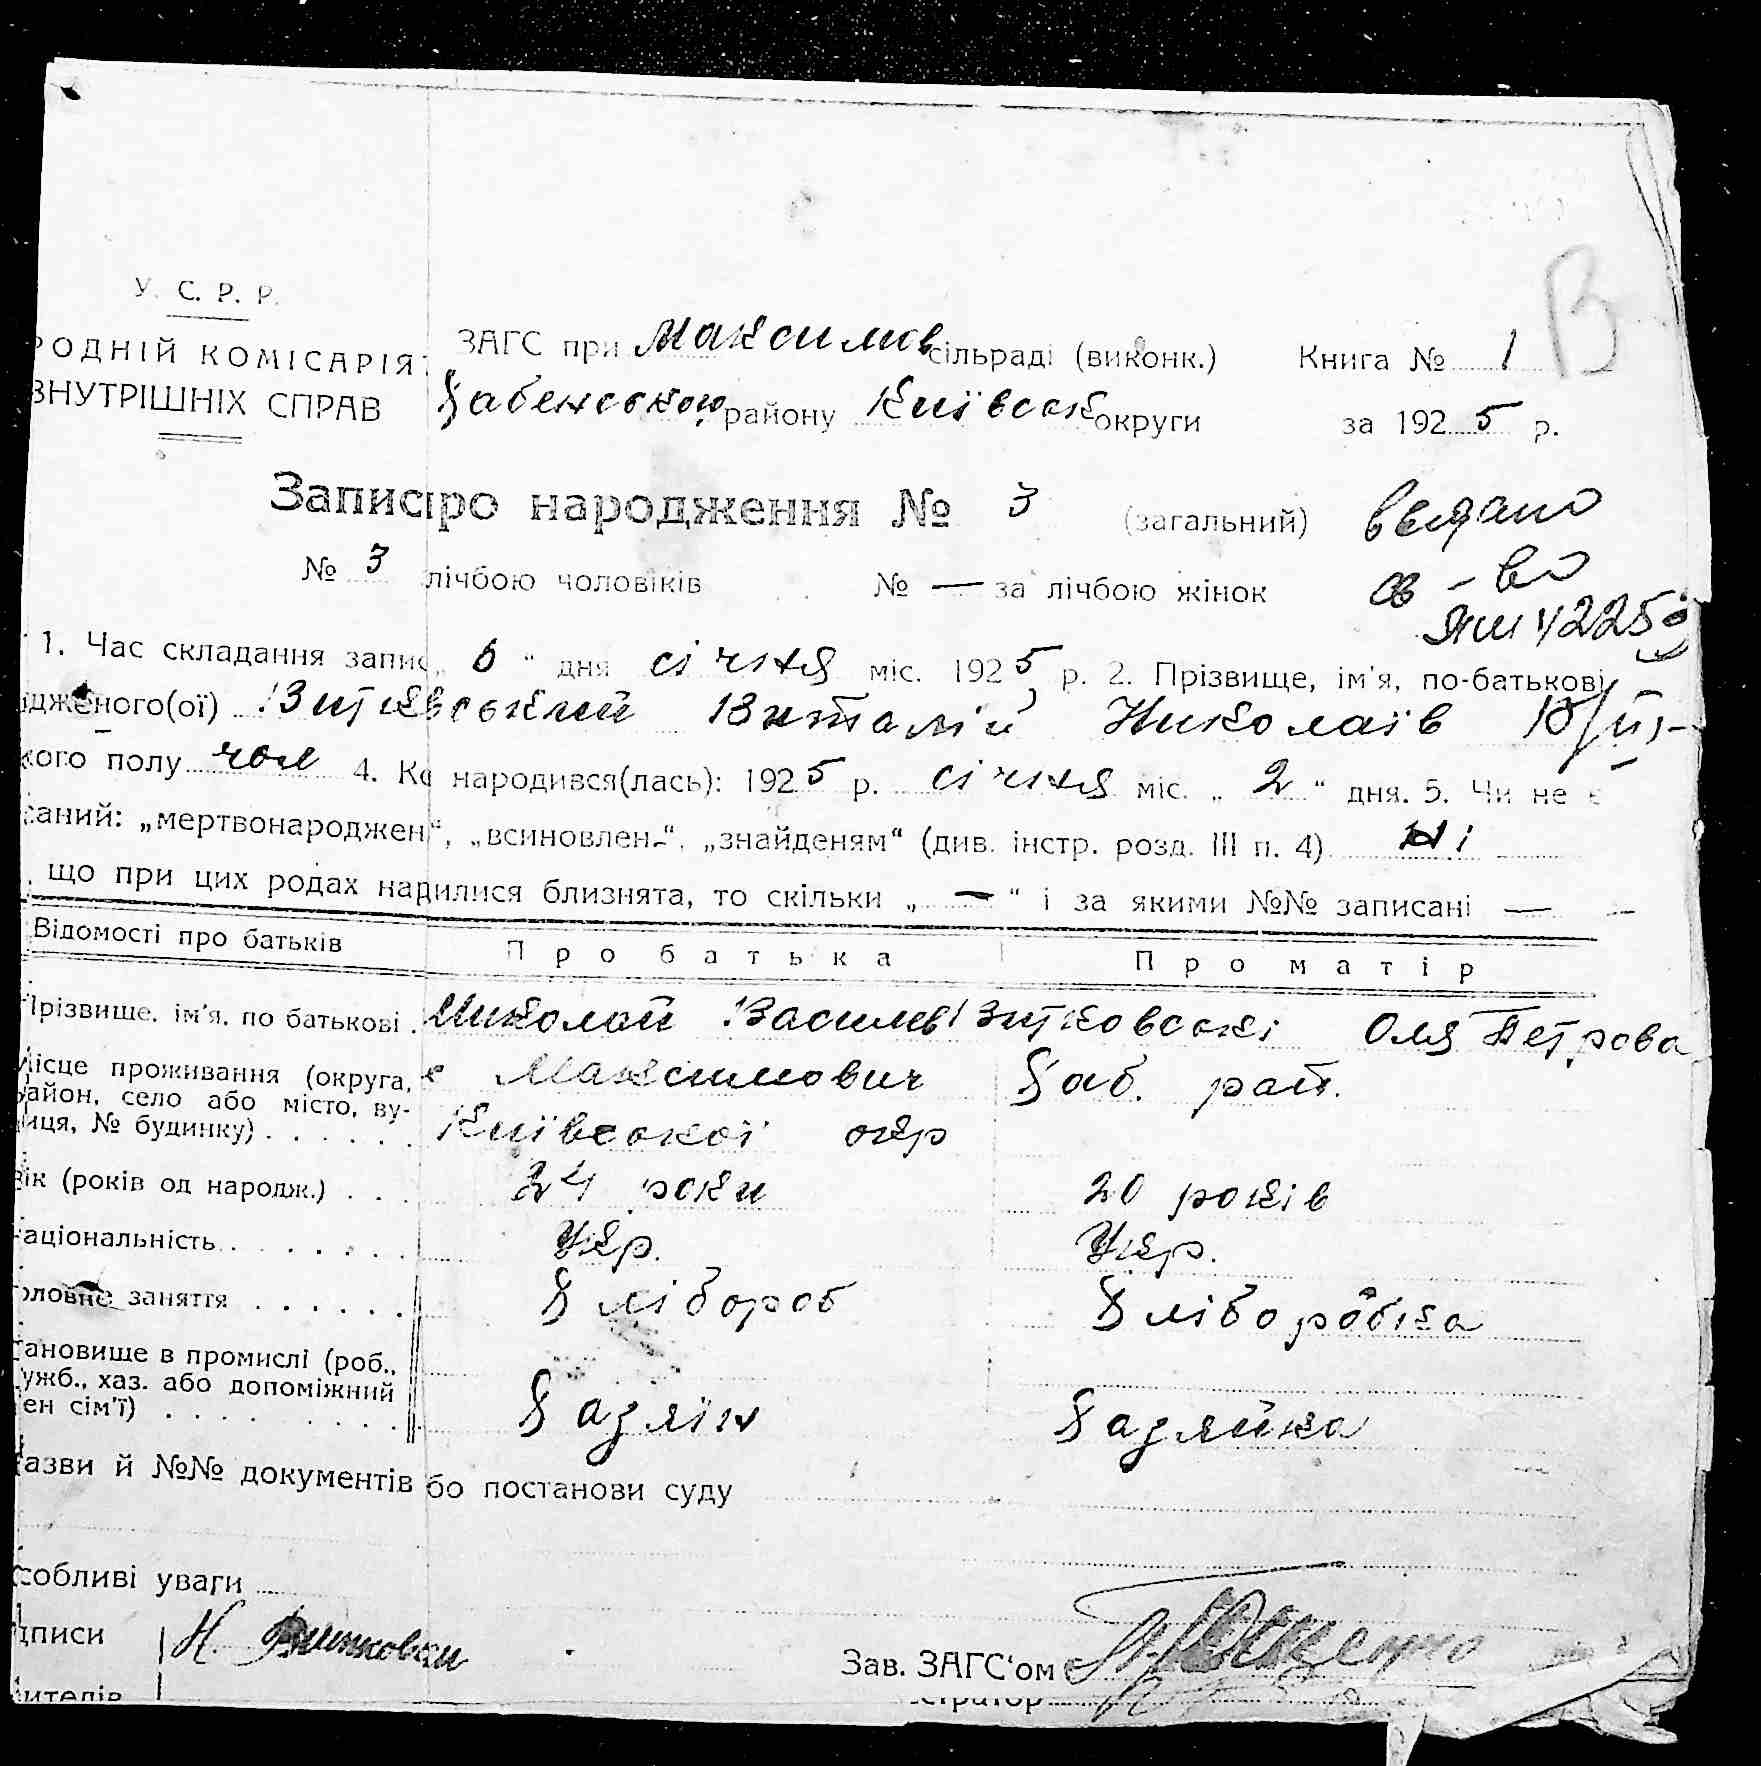 У. С. Р. Р.
РОДНІЙ КОМІСАРІЯ
ВНУТРІШНІХ СПРАВ
ЗАГС при Максимов сільраді (виконк.) Книга № 1
району Київськ округи за 1925 р.
В
Запис про народження № 3 (загальний) видано
№ 3 лічбою чоловіків № — за лічбою жінок св-во
1. Час складання запис „ 6 " дня січня міс. 1925 р. 2. Прізвище, ім'я, по-батькові
дженого(ої) Витковський Виталій Николаїв
кого полу чол 4. Ко народився(лась): 1925 р. січня міс. „ 2 " дня. 5. Чи не є
саний: „мертвонароджен", „всиновлен-", „знайденям" (див. інстр. розд. III п. 4) ні
що при цих родах нар дилися близнята, то скільки „ — " і за якими №№ записані —
Відомості про батьків Про батька Про матір
Прізвище, ім'я, по батькові Николай Василев Витковські Оля Петрова
Місце проживання (округа, с Максимович Хаб. рай.
район, село або місто, ву-
лиця, № будинку) Київської окр
вік (років од народж.) 24 роки 20 років
аціональність Укр. Укр.
оловне заняття Хлібороб Хлібо робка
ановище в промислі (роб.,
ужб., хаз. або допоміжний
ен сім'ї) Хазяїн Хазяйка
азви й №№ документів бо постанови суду
собливі уваги
дписи Н. Витковски Зав. ЗАГС'ом
ителів стратор